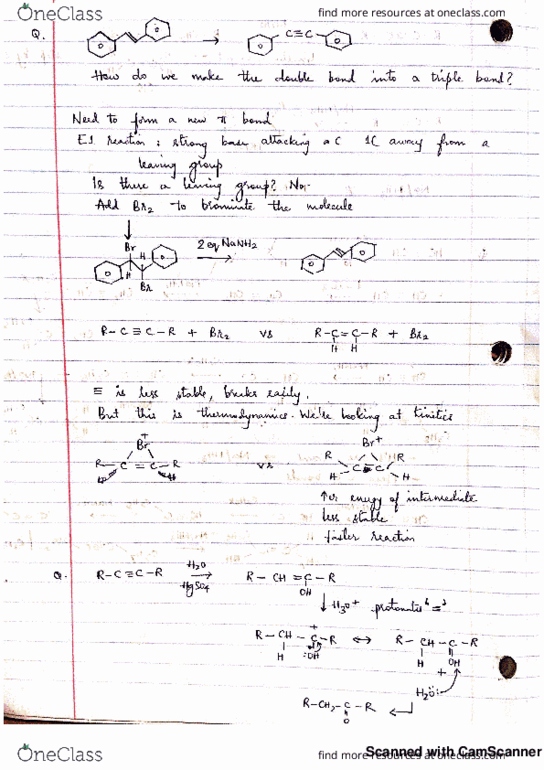 OneClass
find more resources at oneclass.com
Q.
→ C≡C
How do we make the double bond into a triple bond?
Need to form a new π bond
E1 reaction : strong base attacking a C 1C away from a
leaving group
Is there a leaving group? No.
Add Br₂ to brominate the molecule
Br
H
2 eq NaNH₂
H
Br
R-C≡C-R + Br₂ vs R-C=C-R + Br₂
H H
≡ is less stable, breaks easily.
But this is thermodynamics. We're looking at kinetics
Br⁺
R C = C R
vs
Br⁺
R R
H C C H
↑er energy of intermediate
less stable
faster reaction
Q. R-C≡C-R H₂O → HgSO₄ R-CH=C-R
OH
↓ H₃O⁺ protonates =
R-CH-C⁺-R ↔ R-CH-C-R
H :OH H OH
+
H₂O:
R-CH₂-C-R
O
OneClass
find more resources at oneclass.com
Scanned with CamScanner